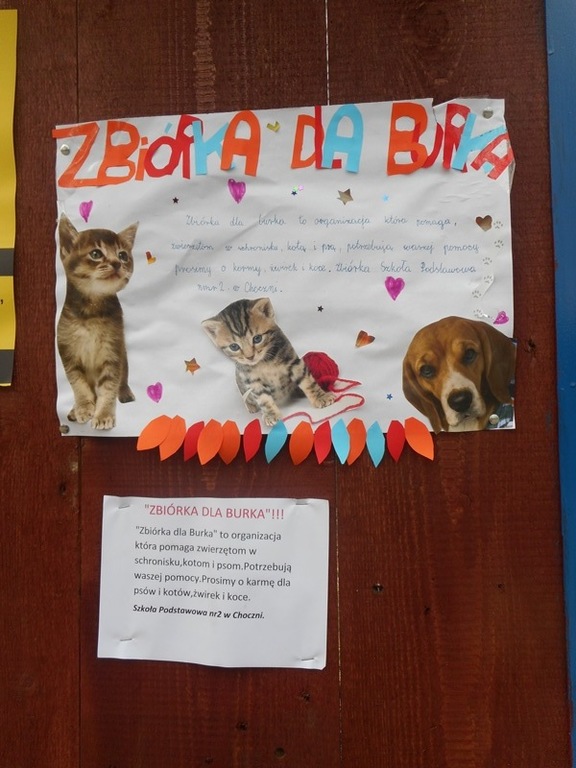 ZBiÓRKA DLA BURKA
Zbiórka dla burka to organizacja która pomaga,
zwierzętom w schronisku, kotą i psą, potrzebują waszej pomocy
prosimy o karmy, żwirek i koce. Zbiórka Szkoła Podstawowa
nr 2 w Choczni.
"ZBIÓRKA DLA BURKA"!!!
"Zbiórka dla Burka" to organizacja
która pomaga zwierzętom w
schronisku,kotom i psom.Potrzebują
waszej pomocy.Prosimy o karmę dla
psów i kotów,żwirek i koce.
Szkoła Podstawowa nr2 w Choczni.